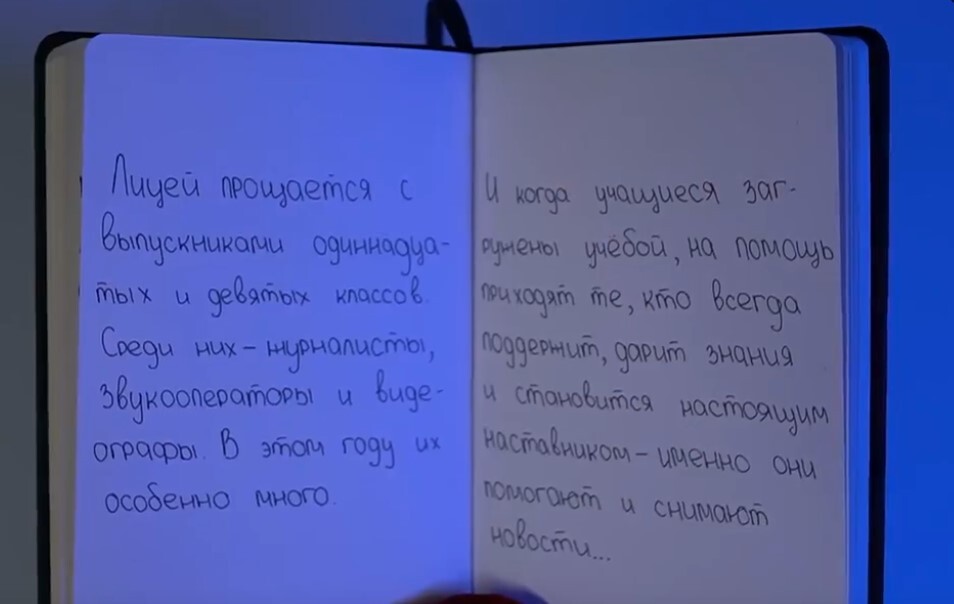 Лицей прощается с
выпускниками одиннадца-
тых и девятых классов.
Среди них – журналисты,
звукооператоры и виде-
ографы. В этом году их
особенно много.
И когда учащиеся заг-
ружены учёбой, на помощь
приходят те, кто всегда
поддержит, дарит знания
и становится настоящим
наставником – именно они
помогают и снимают
новости...